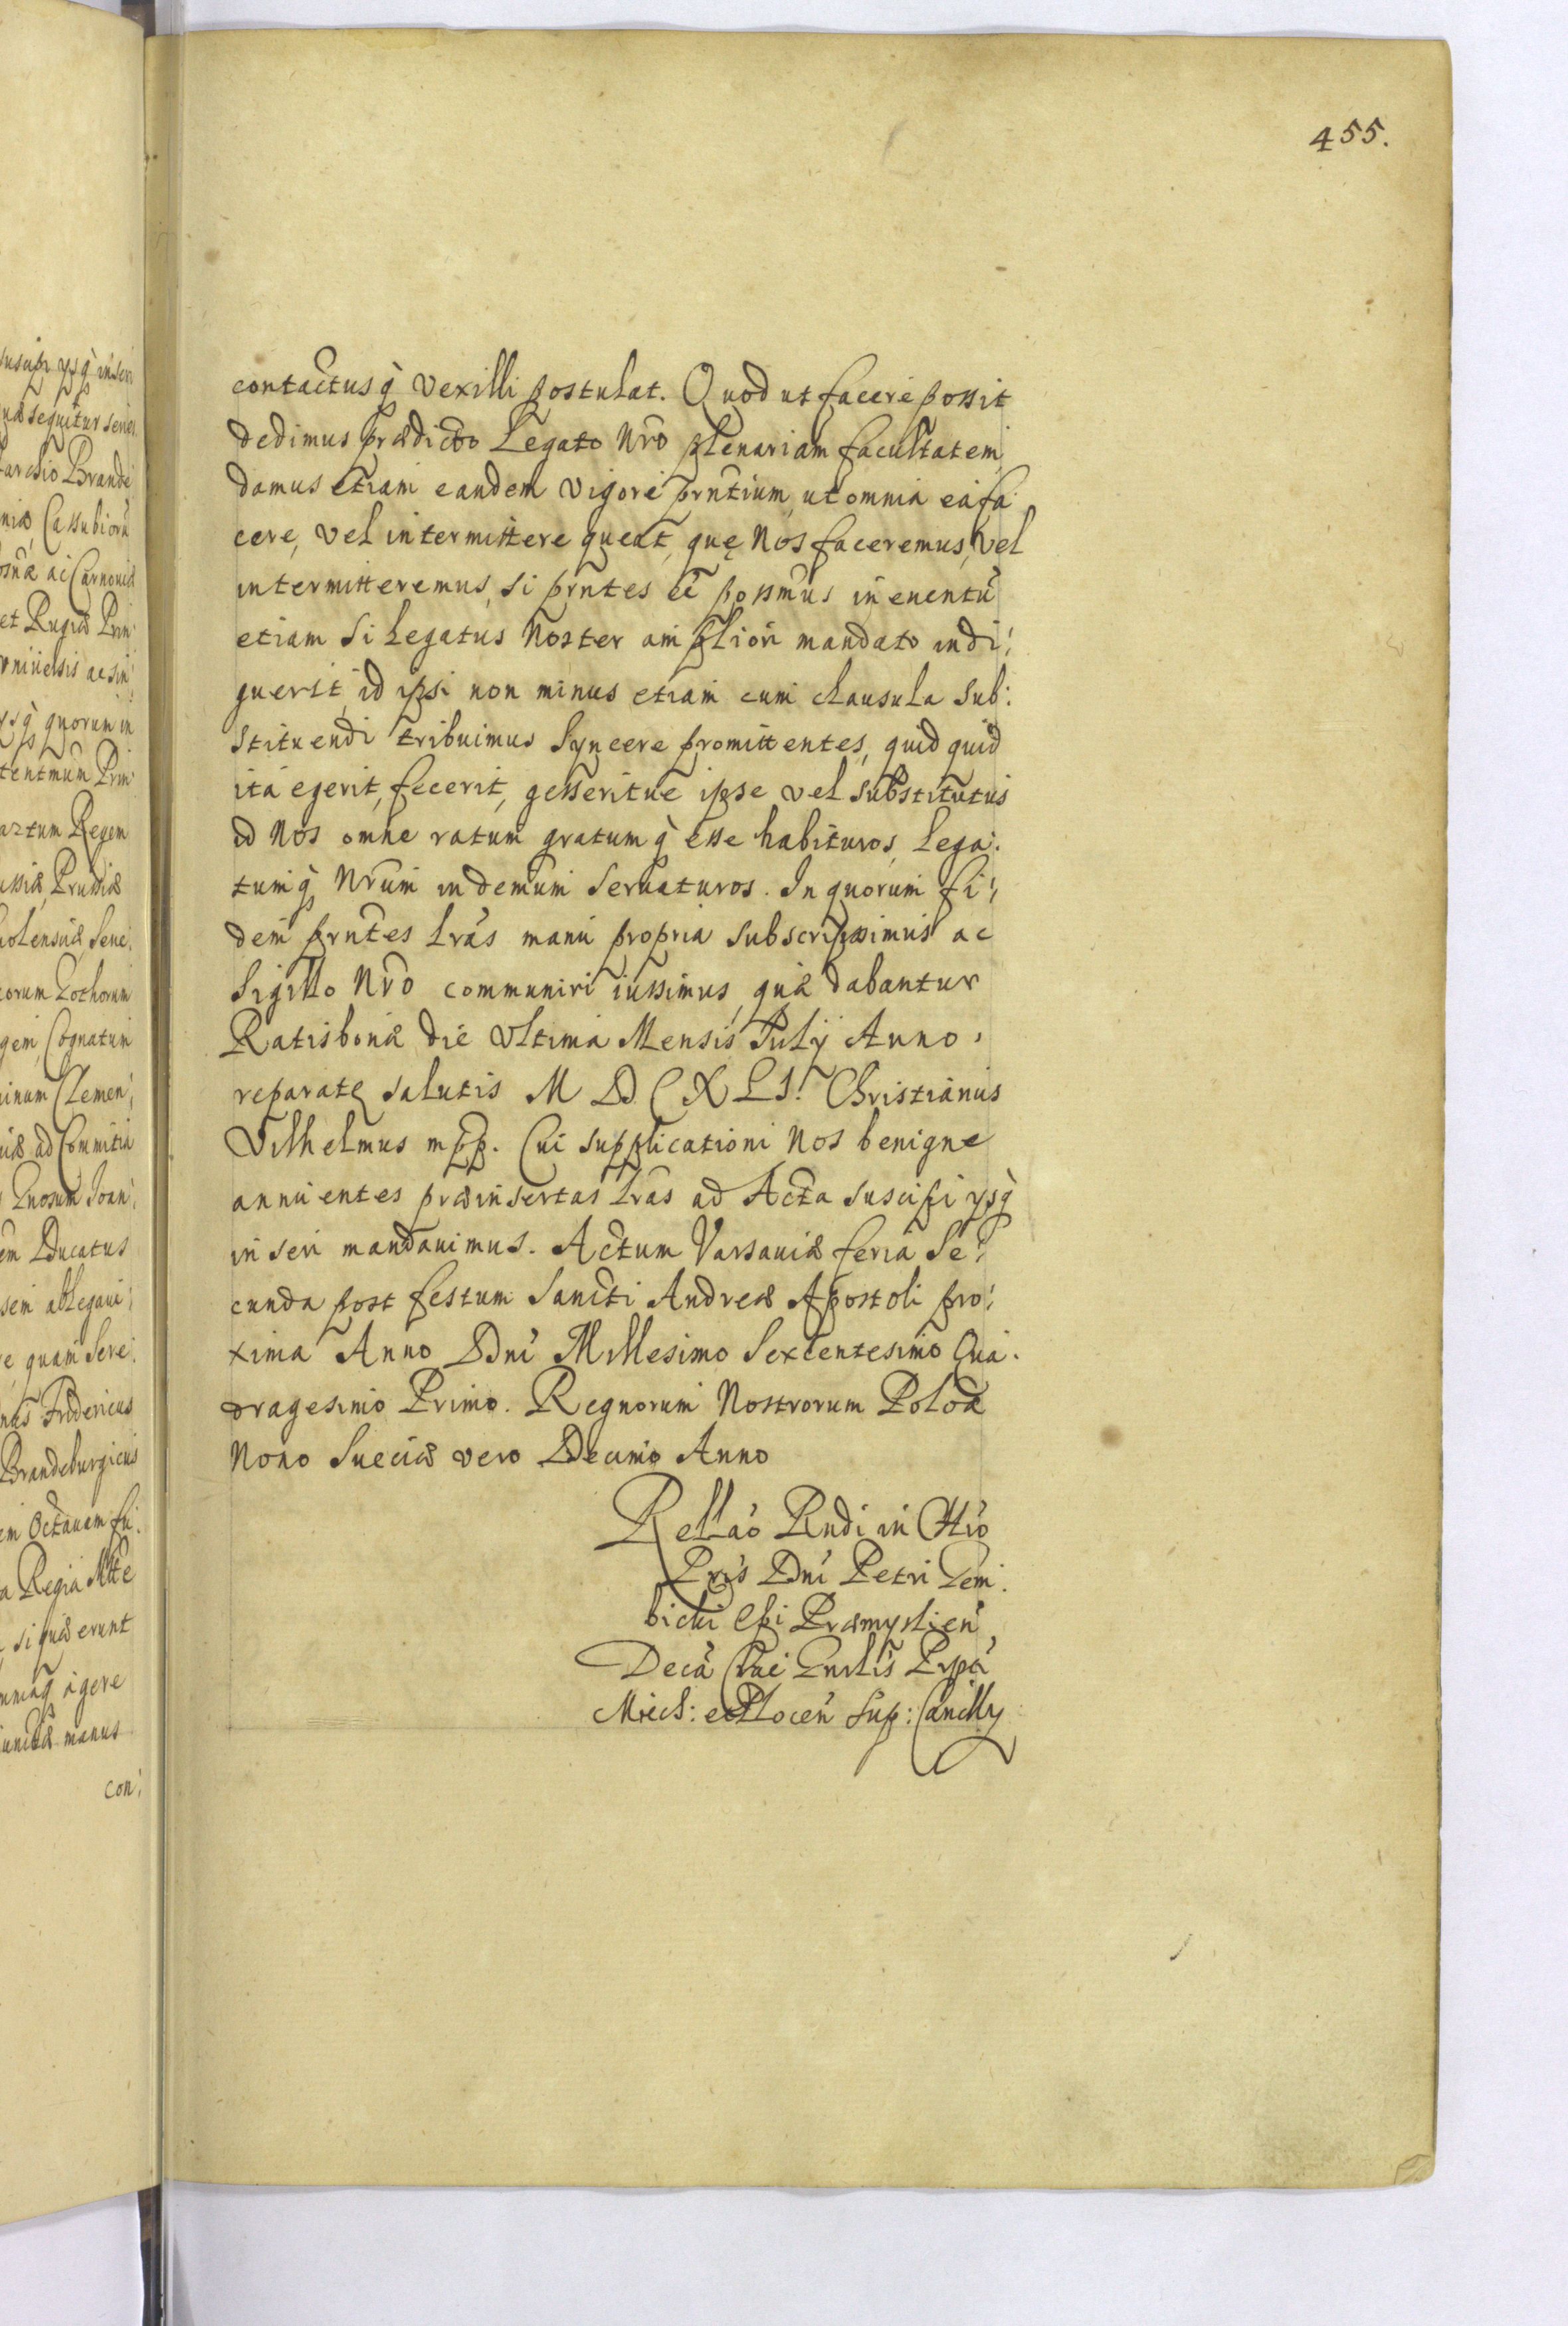 455.
contactusq̀ vexilli postulat. Quod ut facere possit
dedimus prædicto Legato Nro plenariam facultatem,
damus etiam eandem vigore prntium, ut omnia ea fa
cere, vel intermittere queat, quę Nos faceremus, vel
intermitteremus, si prntes ee possmus in euentũ
etiam si Legatus Noster ampliori mandato indi:
guerit, id ipsi non minus etiam cum clausula sub:
stituendi tribuimus Syncere promittentes, quid quid
ita egerit, fecerit, gesseritue ipse vel substitutus
id Nos omne ratum gratumq̀ esse habituros, Lega:
tumq̀ Nrum indemum seruaturos. In quorum fi:
dem prntes lras manu propria subscripsimus ac
Sigillo Nro communiri iussimus, quæ dabantur
Ratisbonæ die ultima Mensis Julÿ Anno
reparatę salutis M D C X L I. Christianus
Vilhelmus mpp. Cui supplicationi Nos benigne
annuentes præinsertas lras ad Acta suscipi ysq̀
inseri mandauimus. Actum Varsauiæ feria Se:
cunda post festum Sancti Andreæ Apostoli pro:
xima Anno Dni Millesimo Sexcentesimo Qua:
dragesimo Primo. Regnorum Nostrorum Polo
Nono Sueciæ vero Decimo Anno
Rellao Rndi in Chro
Pris Dni Petri Gem:
bicki Epi Præmyslien
Miech: et Plocen Sup: Cancelly
suscipi ysq̀ inseri
sequitur series
Brande
niæ, Cassubiorũ
ac Carnouiæ
et Rugiæ Prin
niuersis ac sin
ysq̀ quorum in
tentmum Prin
Regem
ussiæ, Prussiæ
holensiæ, Seue
orum Gothorum
gem, Cognatum
inum Clemen:
ad Comitia
Gnosum Joan:
em Ducatus
sem ablegaui:
e, quam Sere:
nus Fridericus
Brandeburgicus
em Octauam
a Regia Mtte
si quæ erunt
agere
manus
con: